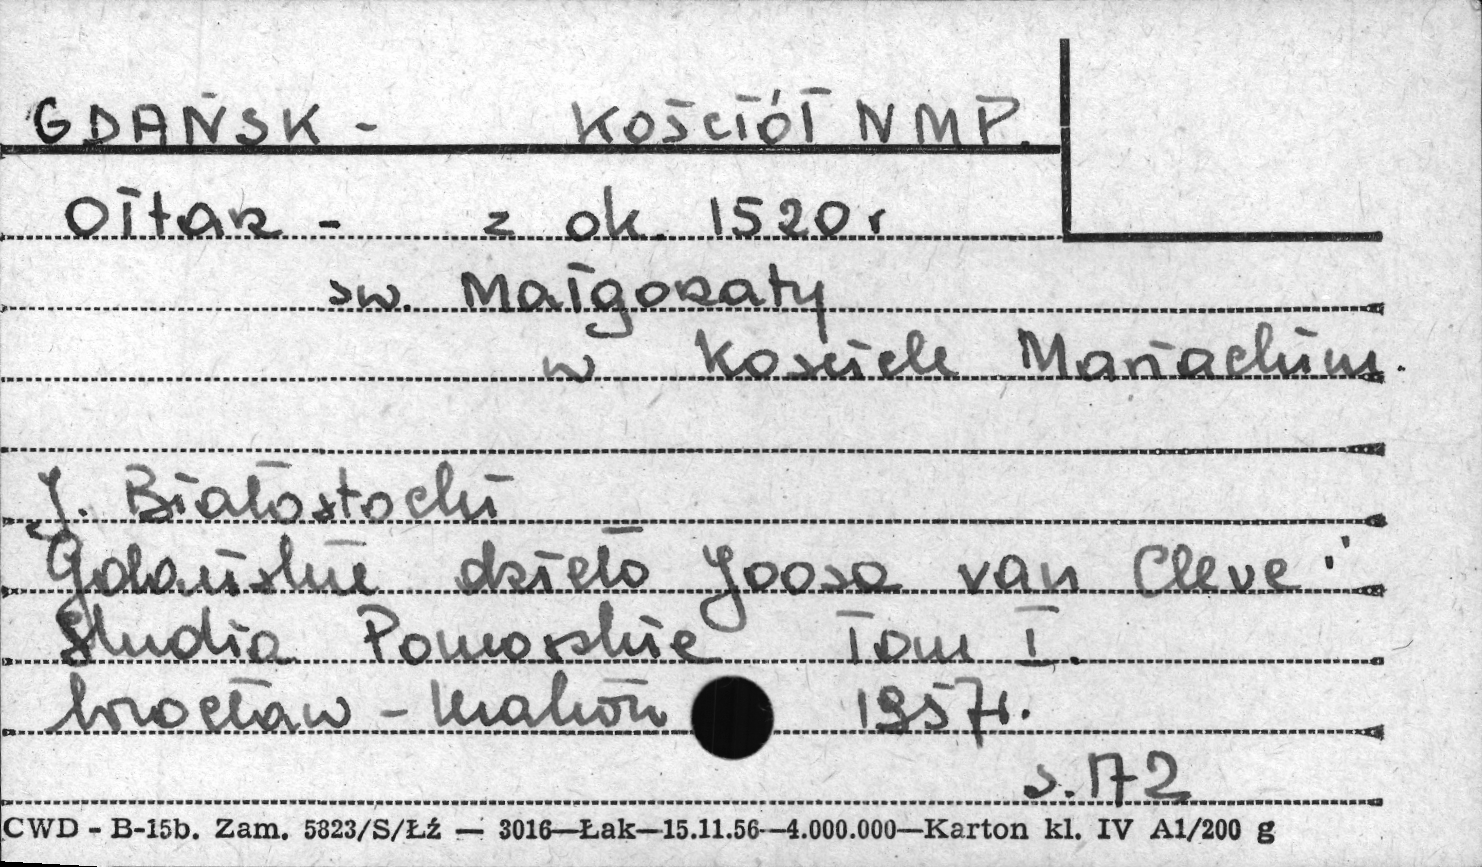 GDAŃSK - Kościół NMP.
Ołtarz - z ok. 1520 r
św. Małgorzaty
w Kościele Mariackim.
J. Białostocki
"Gdańskie dzieło Joosa van Cleve"
Studia Pomorskie Tom I.
Wrocław - Kraków 1957 r.
s. 172
CWD - B-15b. Zam. 5823/S/Łź — 3016—Łak—15.11.56—4.000.000—Karton kl. IV A1/200 g